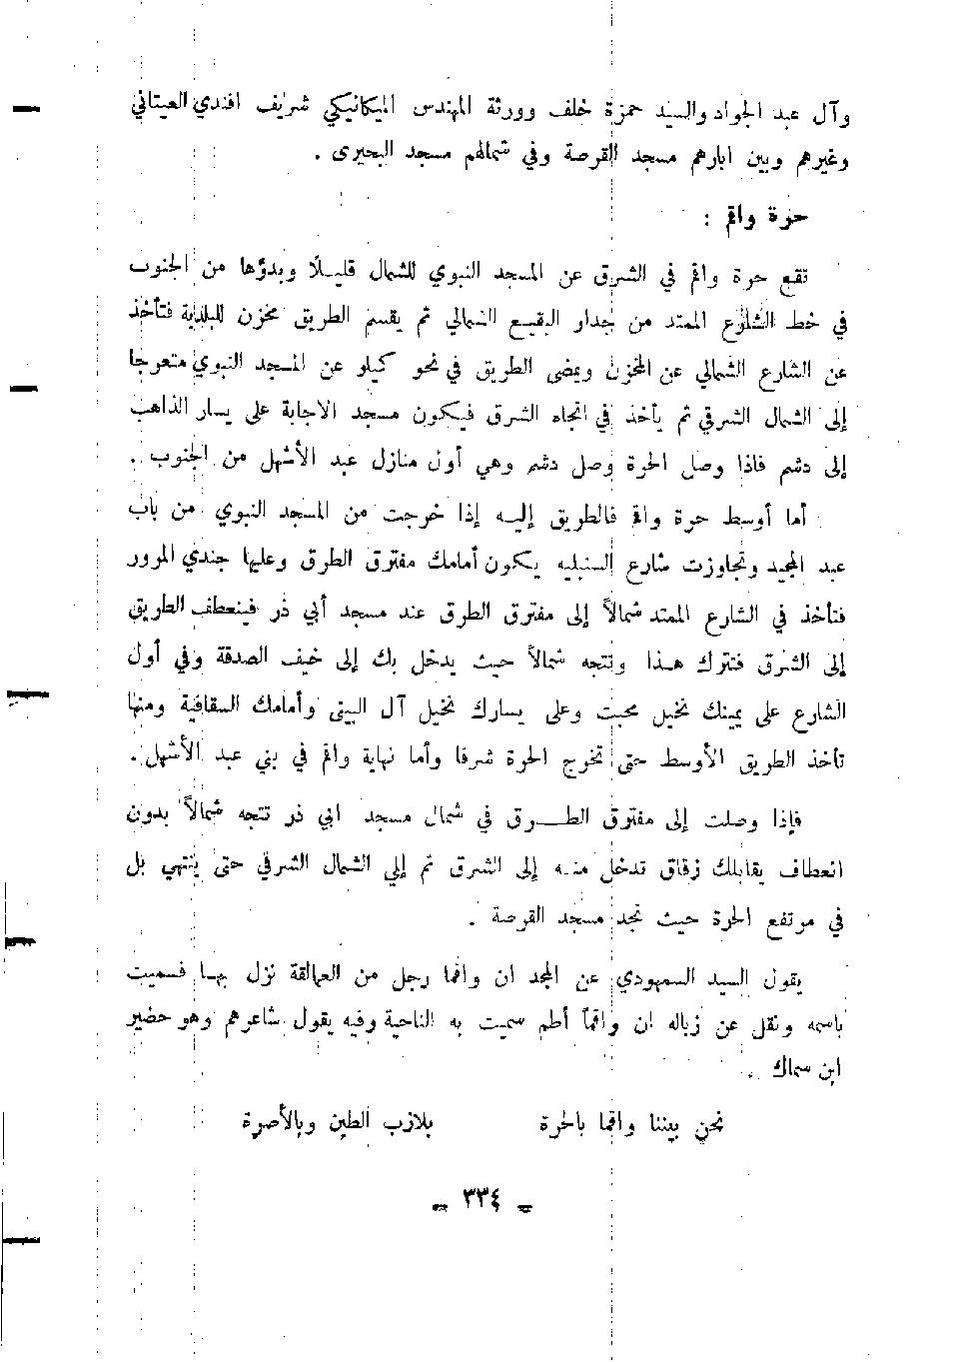 وآل عبد الجواد والسيد حمزة خلف وورثة المهندس الميكانيكي شريف افندي العيتاني
وغيرهم وبين ابارهم مسجد القرصة وفي شمالهم مسجد البحيرى .
حرة واقم :
تقع حرة واقم في الشرق عن المسجد النبوي للشمال قليلاً وبدؤها من الجنوب
في خط الشارع الممتد من جدار البقيع الشمالي ثم يقسم الطريق مخزن للبلدية فتأخذ
عن الشارع الشمالي عن المخزن ويمضى الطريق في نحو كيلو عن المسجد النبوي متعرجا
إلى الشمال الشرقي ثم يأخذ في اتجاه الشرق فيكون مسجد الاجابة على يسار الذاهب
إلى دشم فاذا وصل الحرة وصل دشم وهي أول منازل عبد الأشهل من الجنوب .
أما أوسط حرة واقم فالطريق إليه إذا خرجت من المسجد النبوي من باب
عبد المجيد وتجاوزت شارع السنبليه يكون أمامك مفترق الطرق وعليها جندي المرور
فتأخذ في الشارع الممتد شمالاً إلى مفترق الطرق عند مسجد أبي ذر فينعطف الطريق
إلى الشرق فتترك هذا وتتجه شمالاً حيث يدخل بك إلى خيف الصدقة وفي أول
الشارع على يمينك نخيل محبت وعلى يسارك نخيل آل البيتى وأمامك السقافية ومنها
تأخذ الطريق الأوسط حتى تخرج الحرة شرقا وأما نهاية واقم في بني عبد الأشهل .
فإذا وصلت إلى مفترق الطـــرق في شمال مسجد ابي ذر تتجه شمالاً بدون
انعطاف يقابلك زقاق تدخل منه إلى الشرق ثم إلي الشمال الشرقي حتى ينتهي بل
في مرتفع الحرة حيث تجد مسجد القرصة .
يقول السيد السمهودي عن المجد ان واقما رجل من العمالقة نزل بهـا فسميت
باسمه ونقل عن زباله ان واقماً أطم سميت به الناحية وفيه يقول شاعرهم وهو حضير
ابن سماك .
نحن بيننا واقما بالحرة    بلازب الطين وبالأصرة
- ٣٣٤ -